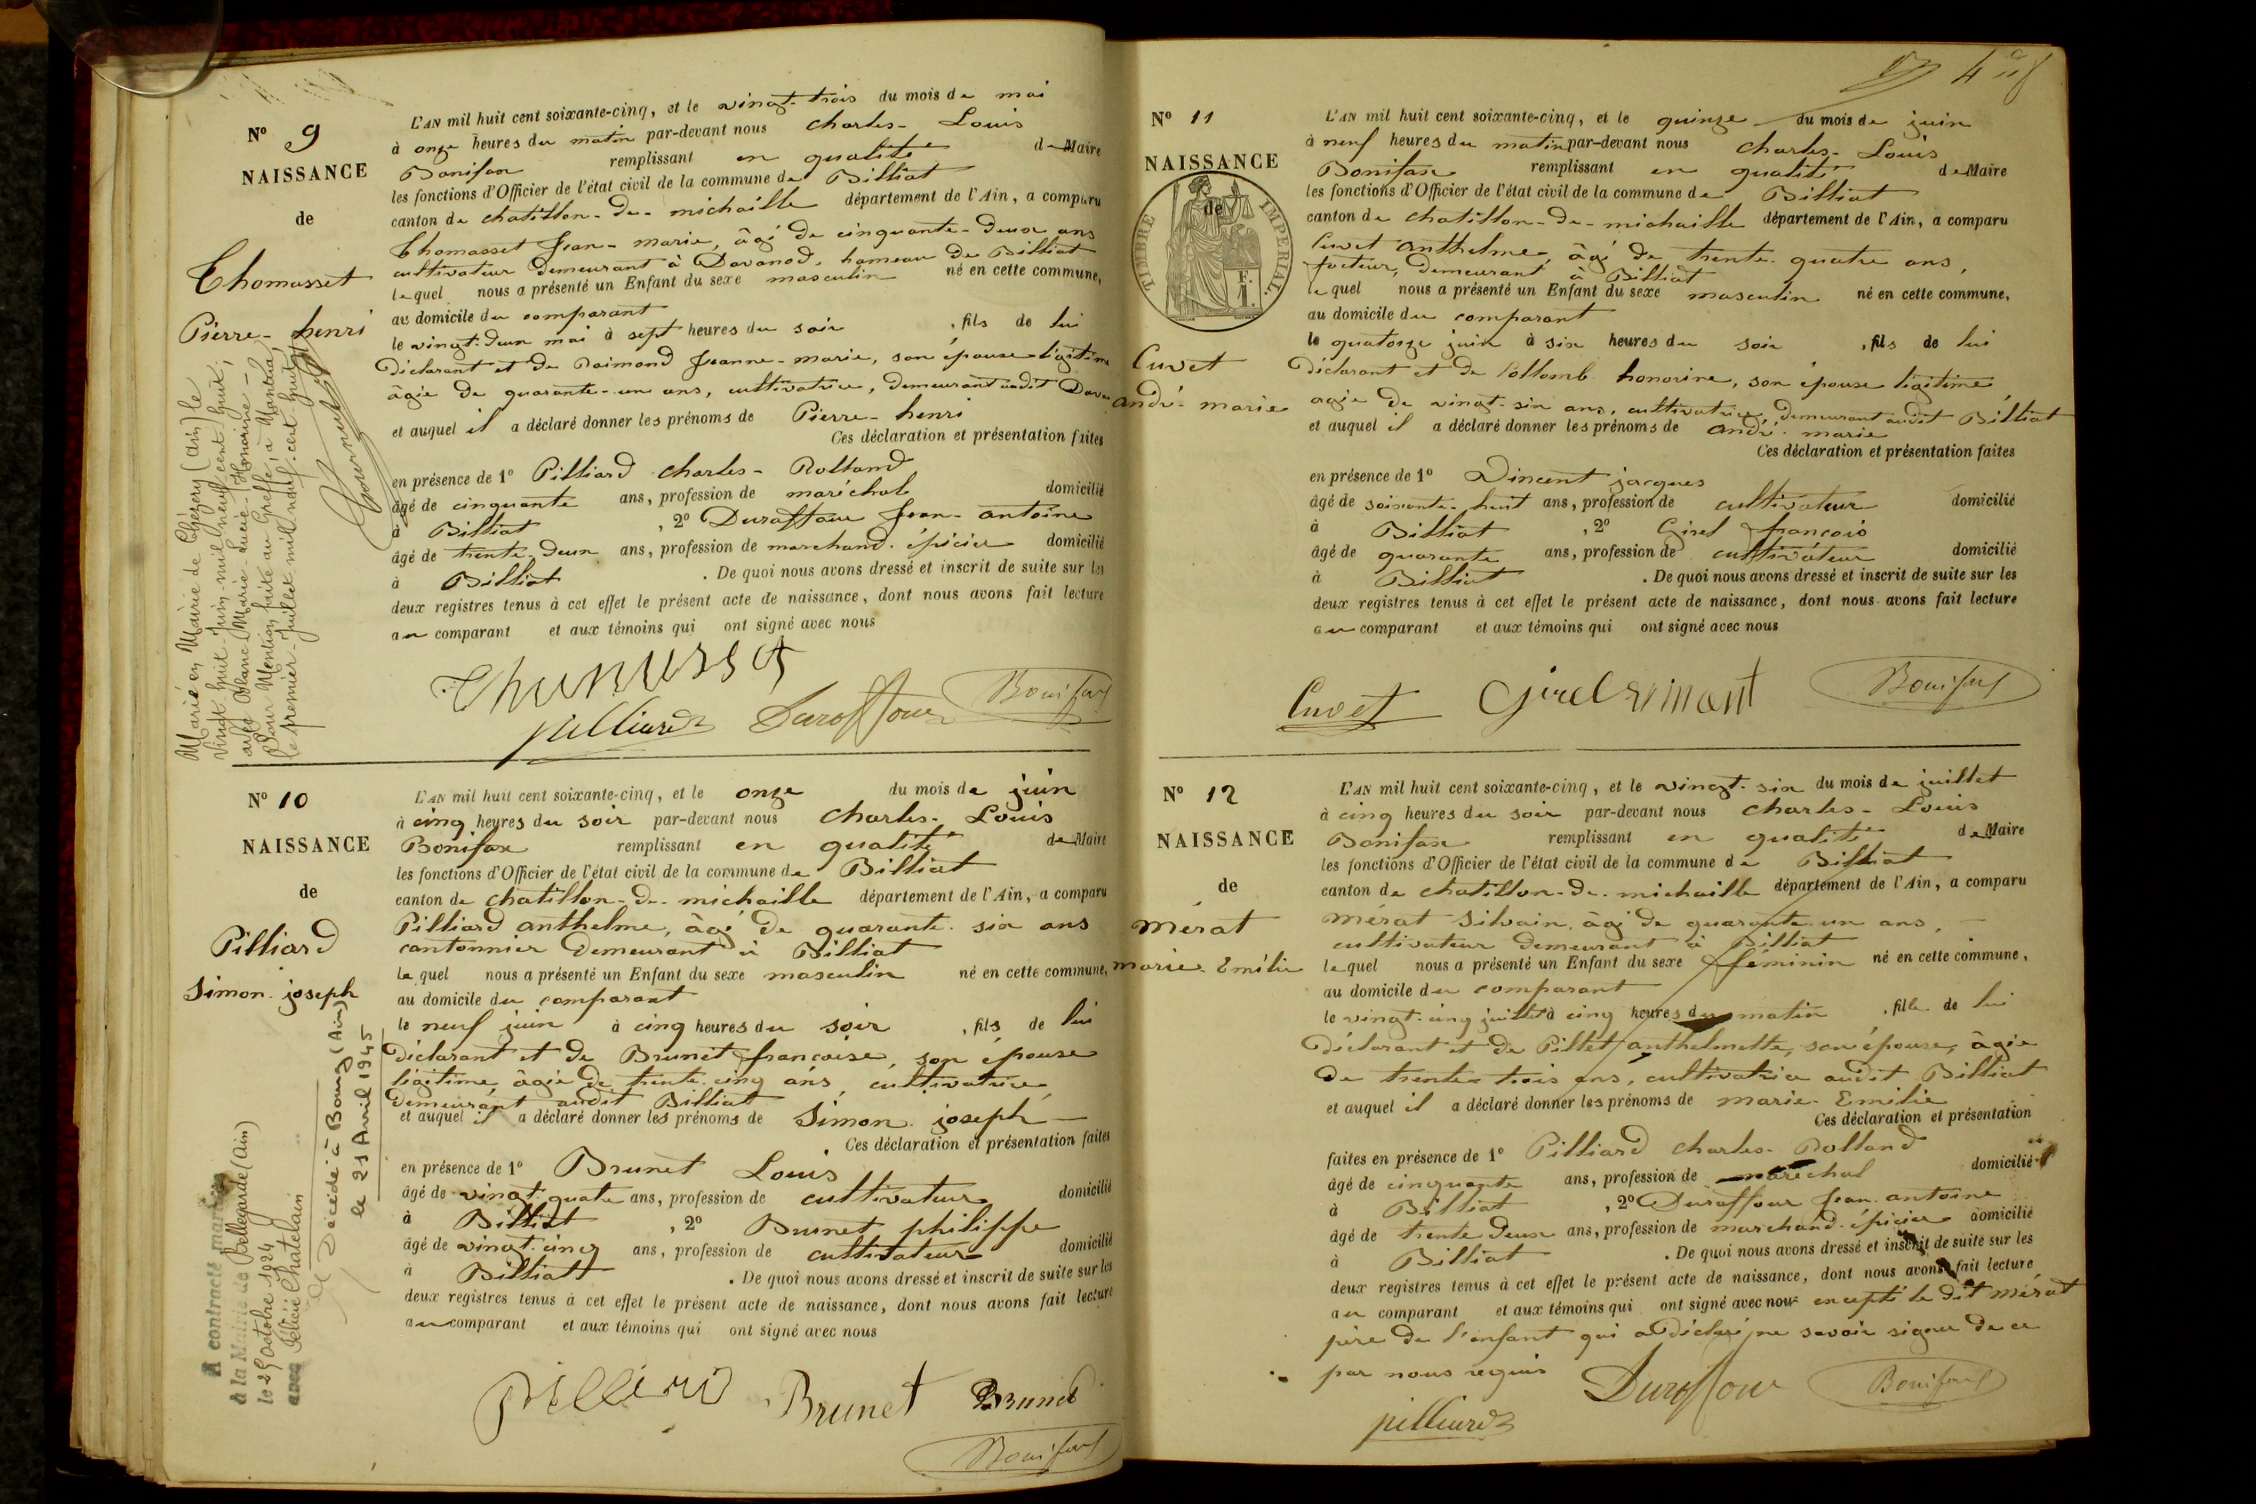 Nº 9
NAISSANCE
de
Thomasset
Pierre-henri
L'AN mil huit cent soixante-cinq, et le vingt-trois du mois de mai
à onze heures du matin par-devant nous Charles-Louis
Bonifax remplissant en qualité de Maire
les fonctions d'Officier de l'état civil de la commune de Billiat
canton de chatillon-de-michaille département de l'Ain, a comparu
Thomasset Jean-marie, âgé de cinquante-deux ans
cultivateur demeurant à Davanod, hameau de Billiat
lequel nous a présenté un Enfant du sexe masculin né en cette commune,
au domicile du comparant
le vingt-deux mai à sept heures du soir, fils de lui
déclarant et de Raimond Jeanne-marie, son épouse légitime
âgée de quarante-un ans, cultivatrice, demeurant audit
et auquel il a déclaré donner les prénoms de Pierre-henri
Ces déclaration et présentation faites
en présence de 1º Pilliard charles-Rolland
âgé de cinquante ans, profession de maréchal domicilié
à Billiat, 2º Duraffour Jean-antoine
âgé de trente-deux ans, profession de marchand-épicier domicilié
à Billiat. De quoi nous avons dressé et inscrit de suite sur les
deux registres tenus à cet effet le présent acte de naissance, dont nous avons fait lecture
au comparant et aux témoins qui ont signé avec nous
Thomasset
pilliard Duraffour Bonifax
Marié en Mairie de Chézery (ain) le
vingt huit-juin-mil neuf cent huit,
avec Blanc Marie-Lucie-Honorine-
Pour Mention faite au Greffe, à Nantua,
le premier-juillet mil neuf-cent-huit
Nº 10
NAISSANCE
de
Pilliard
Simon-joseph
L'AN mil huit cent soixante-cinq, et le onze du mois de juin
à cinq heures du soir par-devant nous Charles-Louis
Bonifax remplissant en qualité de Maire
les fonctions d'Officier de l'état civil de la commune de Billiat
canton de chatillon-de-michaille département de l'Ain, a comparu
Pilliard anthelme, âgé de quarante-six ans
cantonnier demeurant à Billiat
lequel nous a présenté un Enfant du sexe masculin né en cette commune,
au domicile du comparant
le neuf juin à cinq heures du soir, fils de lui
déclarant et de Brunet françoise, son épouse
légitime âgée de trente-cinq ans, cultivatrice
demeurant audit Billiat
et auquel il a déclaré donner les prénoms de Simon-joseph
Ces déclaration et présentation faites
en présence de 1º Brunet Louis
âgé de vingt-quatre ans, profession de cultivateur domicilié
à Billiat, 2º Brunet philippe
âgé de vingt-cinq ans, profession de cultivateur domicilié
à Billiat. De quoi nous avons dressé et inscrit de suite sur les
deux registres tenus à cet effet le présent acte de naissance, dont nous avons fait lecture
au comparant et aux témoins qui ont signé avec nous
Pilliard Brunet Brunet
Bonifax
A contracté mariage
à la Mairie de Bellegarde (Ain)
le 29 octobre 1924
avec Félicie Chatelain
Décédé à Bourg (Ain)
le 21 Avril 1945
4
Nº 11
NAISSANCE
de
TIMBRE IMPERIAL
F.
1.
Cuvet
andré-marie
L'AN mil huit cent soixante-cinq, et le quinze du mois de juin
à neuf heures du matin par-devant nous Charles-Louis
Bonifax remplissant en qualité de Maire
les fonctions d'Officier de l'état civil de la commune de Billiat
canton de chatillon-de-michaille département de l'Ain, a comparu
Cuvet anthelme, âgé de trente-quatre ans,
facteur, demeurant à Billiat
lequel nous a présenté un Enfant du sexe masculin né en cette commune,
au domicile du comparant
le quatorze juin à six heures du soir, fils de lui
déclarant et de Collomb honorine, son épouse légitime
agée de vingt-six ans, cultivatrice, demeurant audit Billiat
et auquel il a déclaré donner les prénoms de andré-marie
Ces déclaration et présentation faites
en présence de 1º Vincent jacques
âgé de soixante-huit ans, profession de cultivateur domicilié
à Billiat, 2º Girel françois
âgé de quarante ans, profession de cultivateur domicilié
à Billiat. De quoi nous avons dressé et inscrit de suite sur les
deux registres tenus à cet effet le présent acte de naissance, dont nous avons fait lecture
au comparant et aux témoins qui ont signé avec nous
Cuvet Girel Bonifax
Nº 12
NAISSANCE
de
Mérat
marie-Emélie
L'AN mil huit cent soixante-cinq, et le vingt-six du mois de juillet
à cinq heures du soir par-devant nous Charles-Louis
Bonifax remplissant en qualité de Maire
les fonctions d'Officier de l'état civil de la commune de Billiat
canton de chatillon-de-michaille département de l'Ain, a comparu
Mérat Silvain, âgé de quarante-un ans,
cultivateur demeurant à Billiat
lequel nous a présenté un Enfant du sexe féminin né en cette commune,
au domicile du comparant
le vingt-cinq juillet à cinq heures du matin, fille de lui
déclarant et de Pillet anthelmette, son épouse, âgée
de trente-trois ans, cultivatrice audit Billiat
et auquel il a déclaré donner les prénoms de marie-Emélie
Ces déclaration et présentation
faites en présence de 1º Pilliard charles-Rolland
âgé de cinquante ans, profession de maréchal domicilié
à Billiat, 2º Duraffour Jean-antoine
âgé de trente-deux ans, profession de marchand-épicier domicilié
à Billiat. De quoi nous avons dressé et inscrit de suite sur les
deux registres tenus à cet effet le présent acte de naissance, dont nous avons fait lecture
au comparant et aux témoins qui ont signé avec nous excepté le dit Mérat
père de l'enfant qui a déclaré ne savoir signer de ce
par nous requis Duraffour Bonifax
pilliard